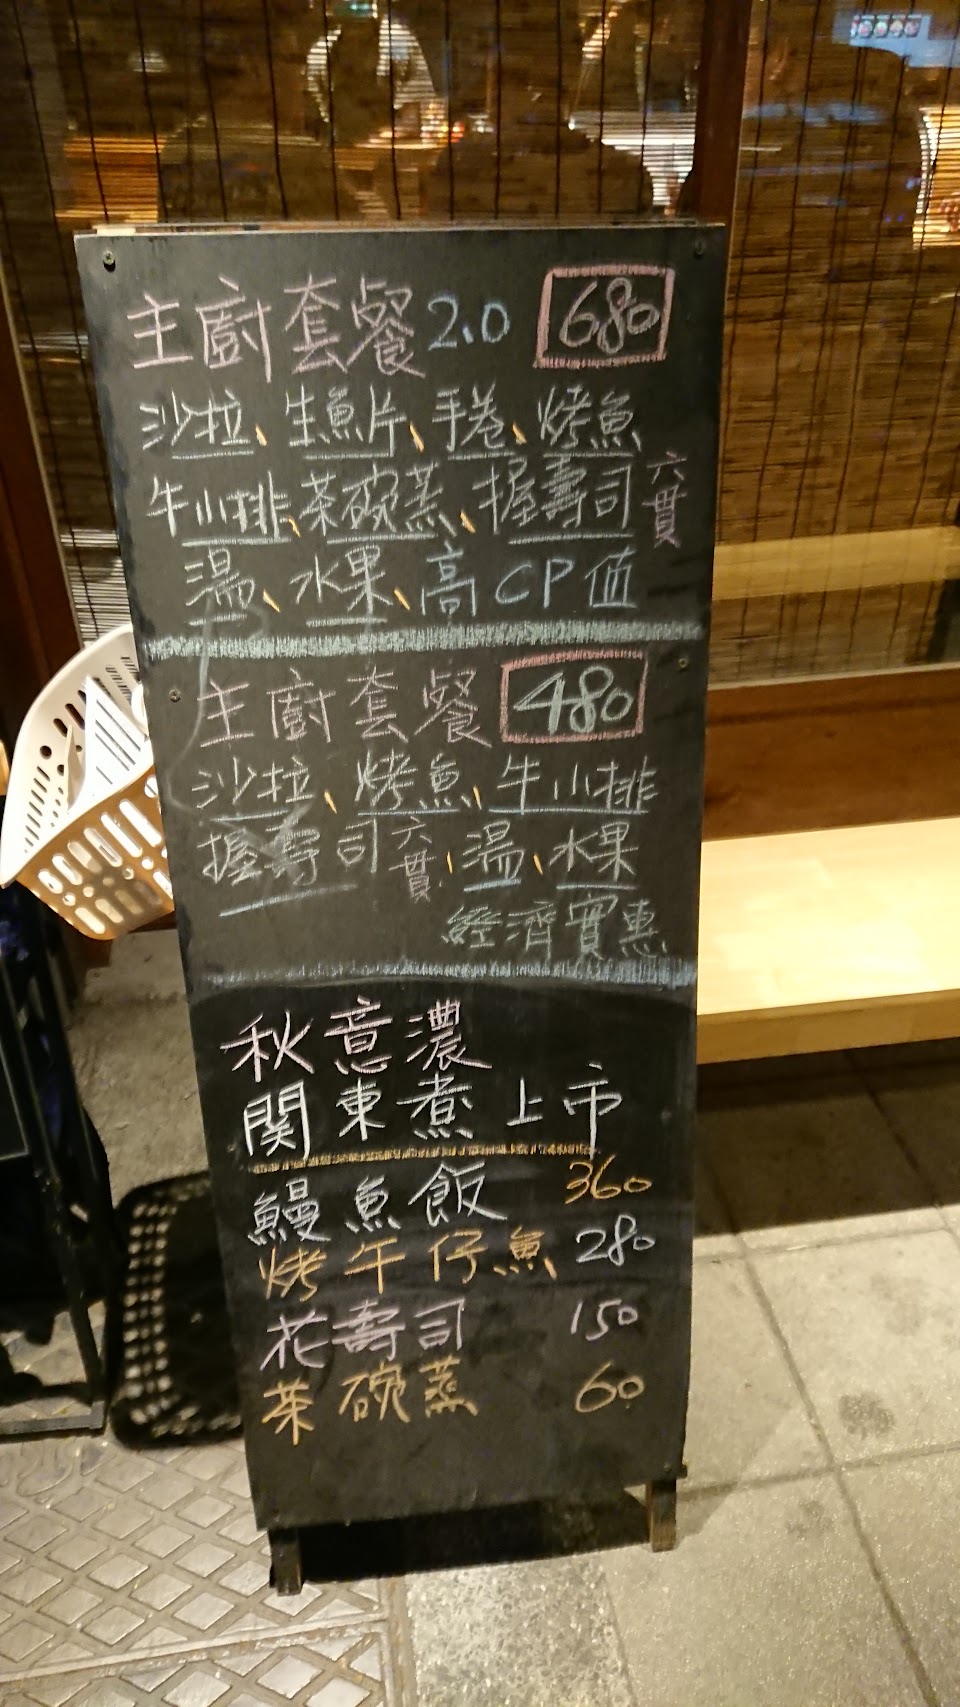 主廚套餐2.0 680
沙拉、生魚片、手卷、烤魚
牛小排、茶碗蒸、握壽司六貫
湯、水果、高CP值
主廚套餐 480
沙拉、烤魚、牛小排
握壽司六貫、湯、水果
經濟實惠
秋意濃
関東煮上市
鰻魚飯 360
烤午仔魚 280
花壽司 150
茶碗蒸 60